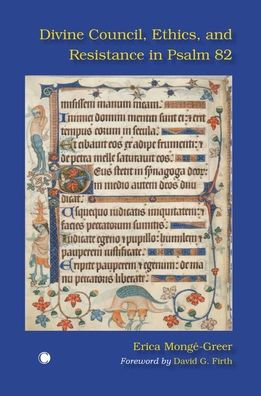 Divine Council, Ethics, and
Resistance in Psalm 82
misissem manum meam.
Inimici domini mentiti sunt ei: et erit
tempus eorum in secula.
Et cibauit eos ex adipe frumenti: et
de petra melle saturauit eos.
Deus stetit in synagoga deor
in medio autem deos diiu
dicat.
Usquequo iudicatis iniquitatem: et
facies peccatorum sumitis.
Iudicate egeno et pupillo: humilem et
pauperem iustificate.
Eripite pauperem: et egenum de ma
nu peccatoris liberate.
Erica Mongé-Greer
Foreword by David G. Firth